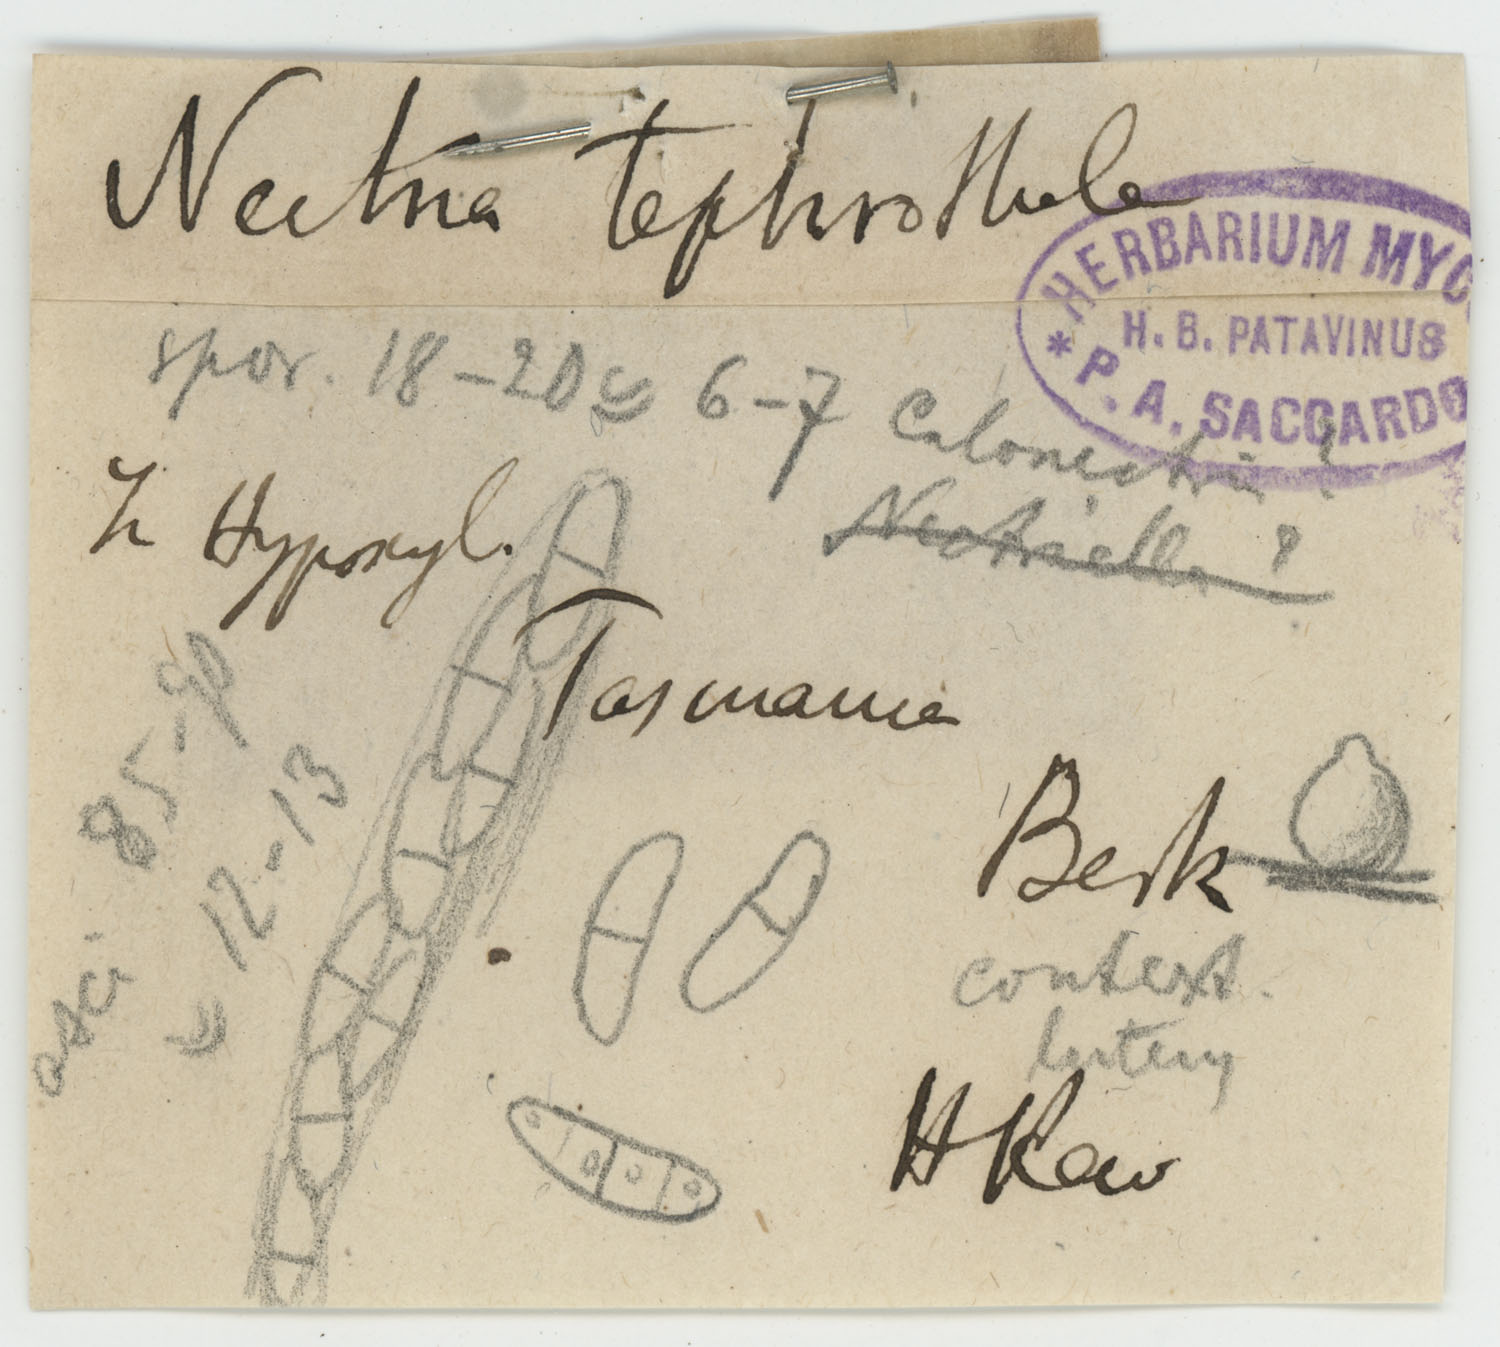 Nectria tephrothele
HERBARIUM MYC
H. B. PATAVINUS
* P. A. SACCARDO
spor. 18-20 ≈ 6-7 Calonectria?
Nectriella?
In Hypoxyl.
Tasmania
asci 85-90
≈ 12-13
Berk
context.
H Kew